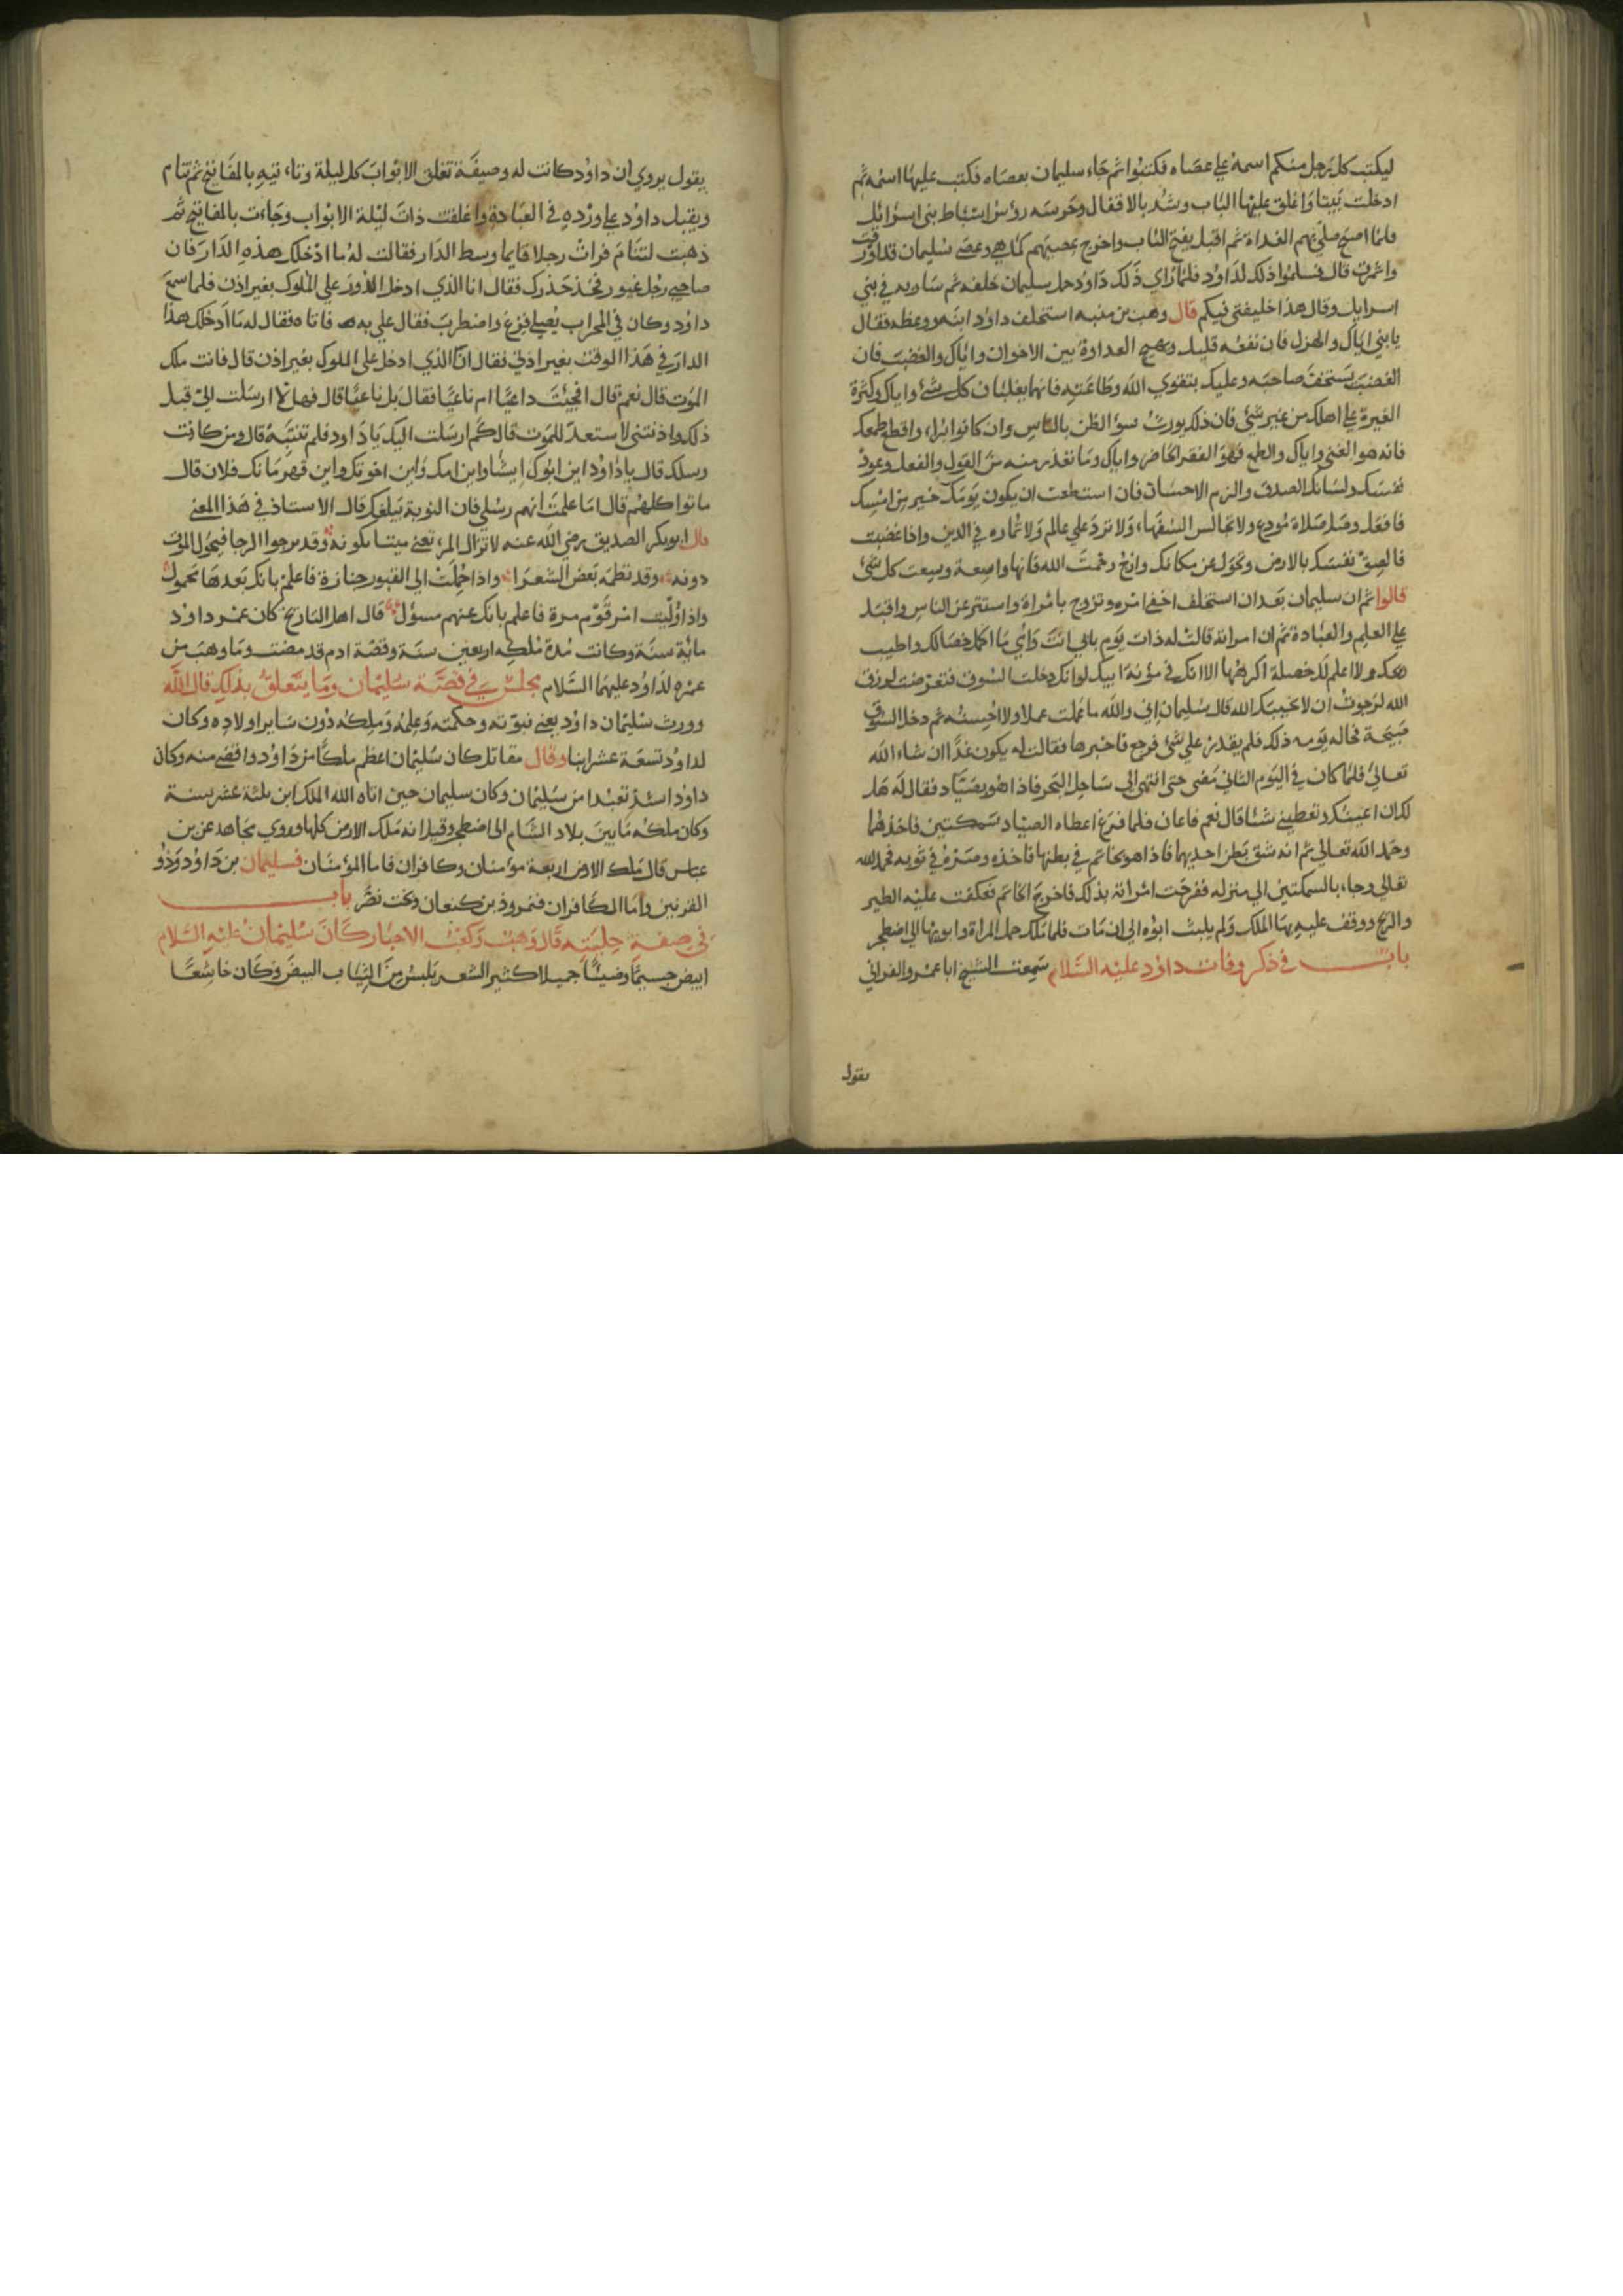 ليكتب كل رجل منكم اسمه علي عصاه فكتبوا ثم جاء سليمان بعصاه فكتب عليها اسمه ثم
ادخلت بيتا واغلق عليها الباب وشد بالاقفال وحرسه رؤس اسباط بني اسرائيل
فلما اصبح صلي بهم الغداة ثم اقبل بفتح الباب واخرج عصيهم كما هي وعصي سليمان قد اورقت
واثمرت قال فسلموا ذلك لداود فلما راي ذلك داود حمل سليمان خلفه ثم سار به في بني
اسرايل وقال هذا خليفتي فيكم قال وهب بن منبه استخلف داود ابنه ووعظه فقال
يا بني اياك والهزل فان نفعه قليل ويهيج العداوة بين الاخوان واياك والغضب فان
الغضب يستخف صاحبه وعليك بتقوي الله وطاعته فانهما يغلبان كل شئ واياك وكثرة
الغيرة علي اهلك من غير شئ فان ذلك يورث سوء الظن بالناس وان كانوا براء واقطع طمعك
فانه هو الغني واياك والطمع فهو الفقر الحاضر واياك وما تعذر منه من القول والفعل وعود
نفسك ولسانك الصدق والزم الاحسان فان استطعت ان يكون يومك خير من امسك
فافعل وصل صلاة مودع ولا تجالس السفهاء ولا ترد علي عالم ولا تماره في الدين واذا غضبت
فالصق نفسك بالارض وتحول عن مكانك وارج رحمت الله فانها واسعة وسعت كل شئ
قالوا ثم ان سليمان بعد ان استخلف اخفي امره وتزوج بامراة واستتر عن الناس واقبل
علي العلم والعبادة ثم ان امراته قالت له ذات يوم بابي انت وامي ما اكمل خصالك واطيب
ولا اعلم لك خصلة اكرهها الا انك في مؤنة ابيك لو انك دخلت السوق فتعرضت لرزق
الله لرجوت ان لا يخيبك الله قال سليمان اني والله ما عملت عملا ولا احسنه ثم دخل السوق
صبيحة ذلك فلم يقدر علي شئ فرجع فاخبرها فقالت له يكون غدا ان شاء الله
تعالي فلما كان في اليوم الثاني مضي حتي انتهي الي ساحل البحر فاذا هو بصياد فقال له هل
لك ان اعينك وتعطيني شئا قال نعم فاعان فلما فرغ اعطاه الصياد سمكتين فاخذهما
وحمد الله تعالي ثم انه شق بطن احديهما فاذا هو بخاتم في بطنها فاخذه وصره في ثوبه فحمد الله
تعالي وجاء بالسمكتين الي منزله ففرحت امراته بذلك فاخرج الخاتم فعكفت عليه الطير
والريح ووقف عليه بها الملك ولم يلبث ابوه الي ان مات فلما ملك حمل المراة وابويها الي اصطخر
باب في ذكر وفات داود عليه السلام سمعت الشيخ ابا عمرو الفراتي
يقول
يقول يروي ان داود كانت له وصيفة تغلق الابواب كل ليلة وتاءتيه بالمفاتيح ثم تنام
ويقبل داود علي ورده في العبادة واغلقت ذات ليلة الابواب وجاءت بالمفاتيح ثم
ذهبت لتنام فرات رجلا قايما وسط الدار فقالت له ما ادخلك هذه الدار فان
صاحبي رجل غيور فخذ حذرك فقال انا الذي ادخل الدور علي الملوك بغير اذن فلما سمع
داود وكان في المحراب يصلي فزع واضطرب فقال علي به فاتاه فقال له ما ادخلك هذا
الدار في هذا الوقت بغير اذن فقال انا الذي ادخل علي الملوك بغير اذن قال فانت ملك
الموت قال نعم قال افجئت داعيا ام ناعيا فقال بل ناعيا قال فهلا ارسلت الي قبل
ذلك واذنتني لاستعد للموت قال كم ارسلت اليك يا داود فلم تنتبه قال ومن كانت
رسلك قال يا داود اين ابوك ايشا واين امك واين اخوتك واين قهرمانك فلان قال
ماتوا كلهم قال اما علمت انهم رسلي فان النوبة تبلغك قال الاستاذ في هذا المعني
قال ابو بكر الصديق رضي الله عنه لا تزال المرء تنعي ميتا يكونه وقد يرجوا الرجا فيحول الموت
دونه وقد نظمه بعض الشعرا واذا حملت الي القبور جنازة فاعلم بانك بعدها محمول
واذا وليت امر قوم مرة فاعلم بانك عنهم مسؤل قال اهل التاريخ كان عمر داود
ماية سنة وكانت مدة ملكه اربعين سنة وقصة ادم قد مضت وما وهب من
عمره لداود عليهما السلام مجلس في قصة سليمان وما يتعلق بذلك قال الله
وورث سليمان داود يعني نبوته وحكمته وعلمه وملكه دون ساير اولاده وكان
لداود تسعة عشر ابنا وقال مقاتل كان سليمان اعظم ملكا من داود واقضي منه وكان
داود اشد تعبدا من سليمان وكان سليمان حين اتاه الله الملك ابن ثلثة عشر سنة
وكان ملكه ما بين بلاد الشام الي اصطخر وقيل انه ملك الارض كلها وروي مجاهد عن بن
عباس قال ملك الارض اربعة مؤمنان وكافران فاما المؤمنان فسليمان بن داود وذو
القرنين واما الكافران فنمروذ بن كنعان وبخت نصر باب
في صفة حليته قال وهب وكعب الاحبار كان سليمان عليه السلام
ابيض جسيما وضيئا جميلا كثير الشعر يلبس من الثياب البيض وكان خاشعا